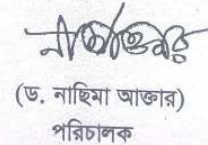 (ড. নাছিমা আক্তার)
পরিচালক